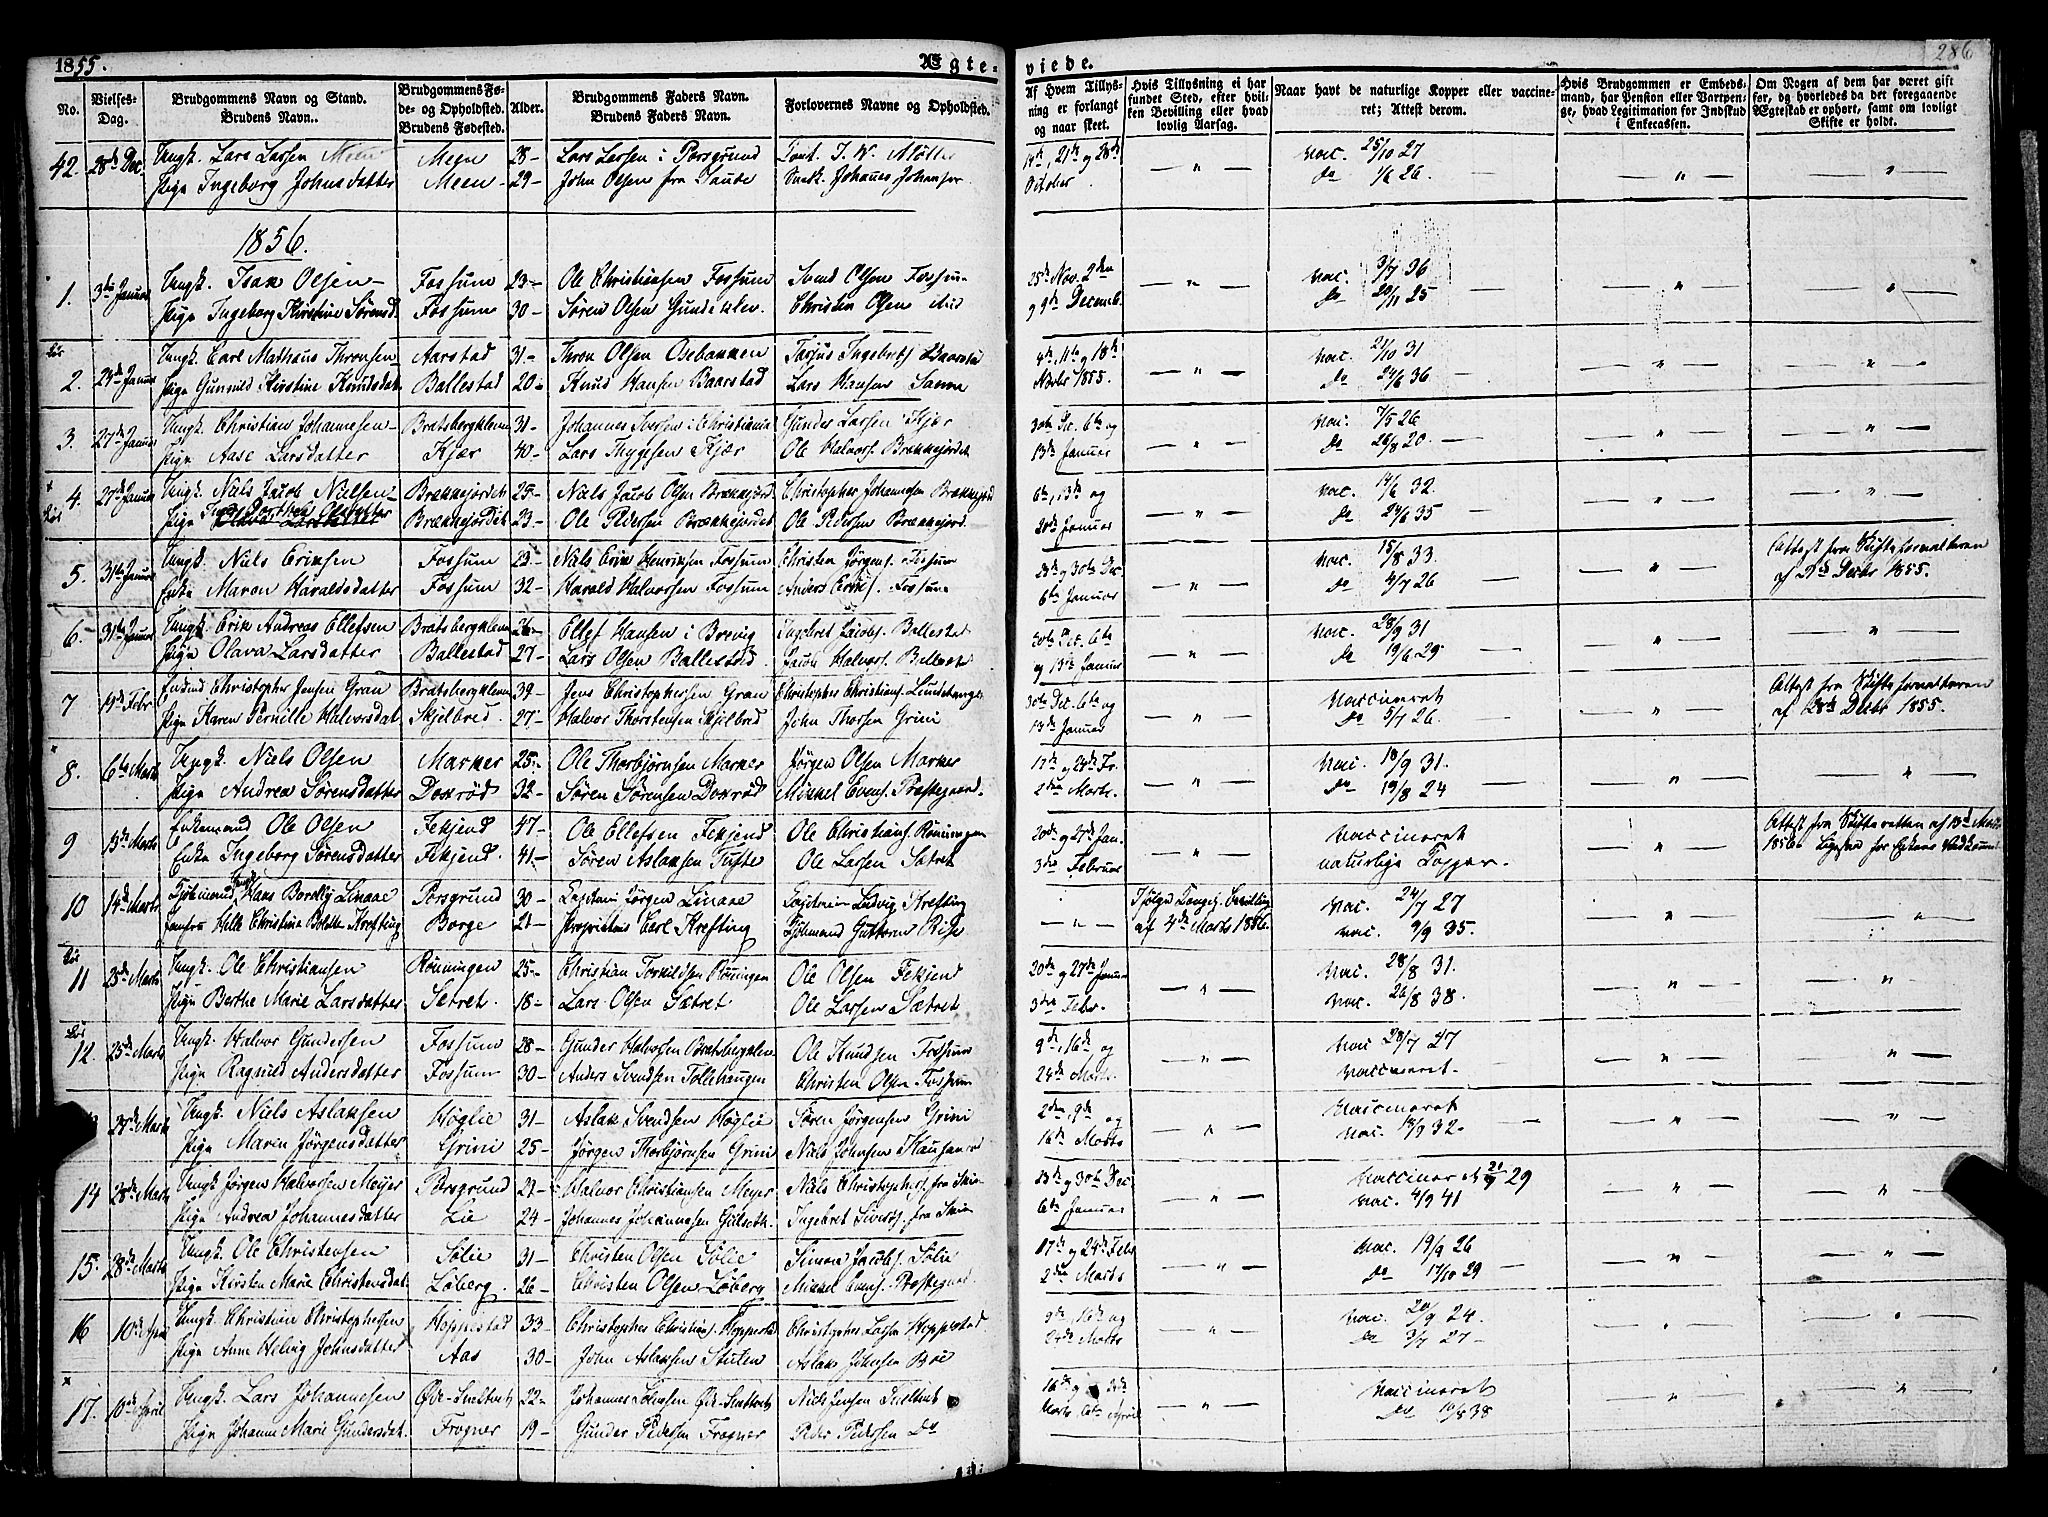 1855.
Ægte-
viede.
286
No.
Vielses-Dag.
Brudgommens Navn og Stand.
Brudens Navn.
Brudgommens Fø-
de- og Opholdsted.
Brudens Fødested.
Alder.
Brudgommens Faders Navn.
Brudens Faders Navn.
Forlovernes Navne og Opholdsted.
Af Hvem Tillys-
ning er forlangt
og naar skeet.
Hvis Tillysning ei har
fundet Sted, efter hvil-
ken Bevilling eller hvad
lovlig Aarsag.
Naar havt de naturlige Kopper eller vaccine-
ret; Attest derom.
Hvis Brudgommen er Embeds-
mand, har Pension eller Vartpen-
ge, hvad Legitimation for Indskud
i Enkecassen.
Om Nogen af dem har været gift
før, og hvorledes da det foregaaende
Ægtestad er ophørt, samt om lovligt
Skifte er holdt.
42. 28de Dec. Ungk. Lars Larsen Meen Meen 28- Lars Larsen i Porsgrund J. W. Møller 14de, 21de og 28de vac. 25/10 27
Pige Ingeborg Johnsdatter Meen 29- John Olsen fra Saude Johannes Johansen October do 1/6 26.
1856.
1. 3die Januar Ungk. Isak Olsen Fossum 23- Ole Christiansen Fossum Svend Olsen Fossum 25de Nov. 2den vac. 3/7 36
Pige Ingeborg Kirstine Sørensd. Fossum 30- Søren Olsen Gundeklev. Christen Olsen ibid og 9de Decemb. do 20/11 25
2. 24de Januar Ungk. Carl Mathæus Thronsen Aarstad 31- Thron Olsen Osebakken Tarjus Ingebrets. Baarstad 4de, 11te og 18de vac. 21/10 31
Pige Gunnild Kirstine Knudsdat. Ballestad 20- Knud Hansen Baarstad Lars Hansen Sanne Novbr 1855. do 24/6 36
3. 27de Januar Ungk. Christian Johannesen Bratsbergkleven 31- Johannes Iversen i Christiania Gunder Larsen Kjær 30te Dec. 6te og vac. 7/5 26
Pige Aase Larsdatter Kjær 40- Lars Thygesen Kjær Ole Halvors. Brækkejordet 13de Januar do 26/8 20.
4. 27de Januar Ungk. Niels Jacob Nielsen Brækkejordet 25- Niels Jacob Olsen Brækkejord. Christopher Johannesen Brækkejord 6te, 13de og vac. 14/6 32.
Pige Brækkejordet 23- Ole Pedersen Brækkejordet Ole Pedersen Brækkejord. 20de Januar do 24/6 35
5. 31te Januar Ungk. Niels Eriksen Fossum 23- Niels Erik Henriksen Fossum Christen Jørgens. Fossum 23de og 30te Dec. vac. 15/8 33. Attest fra Skifteforvalteren
Enke Maren Haraldsdatter Fossum 32- Harald Halvorsen Fossum Anders Eriks. Fossum 6te Januar do 4/7 26 af Decbr 1855.
6. 31te Januar Ungk. Erik Andreas Ellefsen Bratsbergkleven 26- Ellef Hansen i Brevig Ingebret Jacobs. Ballestad 30te Dec. 6te vac. 28/9 31
Pige Olava Larsdatter Ballestad 27- Lars Olsen Ballestad. Jacob Halvors. Ballestad og 13de Januar do 19/6 29
7 19de Febr. Enkemd Christopher Jensen Gran Bratsbergkleven 39- Jens Christophersen Gran Christopher Christians. Lundehaugen 30te Dec. 6te og vaccineret Attest fra Skifteforvalteren
Pige Karen Pernille Halvorsdat. Skjelbred. 27- Halvor Thorstensen Skjelbred John Thorsen Grini 13de Januar do 5/7 26. af 28de Decbr 1855.
8. 6te Marts Ungk. Niels Olsen Marker 25- Ole Thorbjørnsen Marker Jørgen Olsen Marker 17de og 24de Fr. vac. 18/9 31.
Pige Andrea Sørensdatter Doxrød 32- Søren Sørensen Doxrød Mikkel Evens. Præstegaard. 2den Marts. do 19/8 24
9 13de Marts Enkemand Ole Olsen Fekjend 47- Ole Ellefsen Fekjend Ole Christians. Rønningen 20de og 27de Jan. vaccineret Attest fra Skifteretten af 13de Marts
Enke Ingeborg Sørensdatter Fekjend. 41- Søren Aslaksen Tufte Ole Larsen Sætret 3die Februar naturlige Copper. 1856.
10 14de Marts Hans Bordby Linaae Porsgrund 30- Capitain Jørgen Linaae Ludvig Krefting Ifølge Kongel. Bevilling vac. 24/7 27
Jomfru Christine Bolette Krefting Borge 21- Proprietær Carl Krefting Guttorm Rise af 4de Marts 1856. vac. 9/9 35.
11 25de Marts Ungk. Ole Christiansen Rønningen 25- Christian Torkildsen Rønningen Ole Olsen Fekjend 20de og 27de Januar vac. 28/8 31.
Pige Berthe Marie Larsdatter Sætret. 18- Lars Olsen Sætret Ole Larsen Sætret 3die Febr. vac. 26/8 38.
12. 25de Marts Ungk. Halvor Gundersen Fossum 28- Gunder Halvorsen Bratsbergklev. Ole Knudsen Fossum 9de, 16de og vac 23/7 27
Pige Ragnild Andersdatter Fossum 30- Anders Svendsen Tollehaugen Christen Olsen Fossum 24de Marts. vaccineret.
27de Marts Ungk. Niels Aslaksen Høglie 31- Aslak Svendsen Høglie Søren Jørgensen Grini 2den, 9de og vaccineret
Pige Maren Jørgensdatter Grini 25- Jørgen Thorbjørnsen Grini Niels Johnsen 16de Marts vac. 18/9 32.
14 28de Marts Ungk. Jørgen Halvorsen Meyer Porsgrund 27- Halvor Christiansen Meyer Niels Christophers. fra Skien 23de og 30te Dec. vaccineret 21/7 29
Pige Andrea Johannesdatter Lie 24- Johannes Johannesen Gulseth. Ingebret Sivers. fra Skien 6te Januar vac. 4/9 41
15. 28de Marts Ungk. Ole Christensen Sølie 31- Christen Olsen Sølie Simon Jacobs. Sølie 17de og 24de Febr. vac. 19/9 26
Pige Kirsten Marie Christensdat. Løberg. 26- Christen Olsen Løberg Mikkel Evens. Præstegaard 2den Marts do 17/10 29
16 10de April Ungk. Christian Christophersen Hoppestad 33- Christopher Christians. Hoppestad Christopher Larsen Hoppestad. 9de, 16de og vac. 20/9 24.
Pige Anne Helvig Johnsdatter Aas 30- John Aslaksen Stulen Aslak Johnsen Bøe 24de Marts do 3/7 27
17. 10de April Ungk. Lars Johannesen Øde-Skattet 22- Johannes Johnsen Øde-Skattet Niels Jensen 16de og 24de vaccineret
Pige Johanne Marie Gundersdat. Frogner 19- Gunder Pedersen Frogner Peder Pedersen do Marts 6te April do 10/8 38